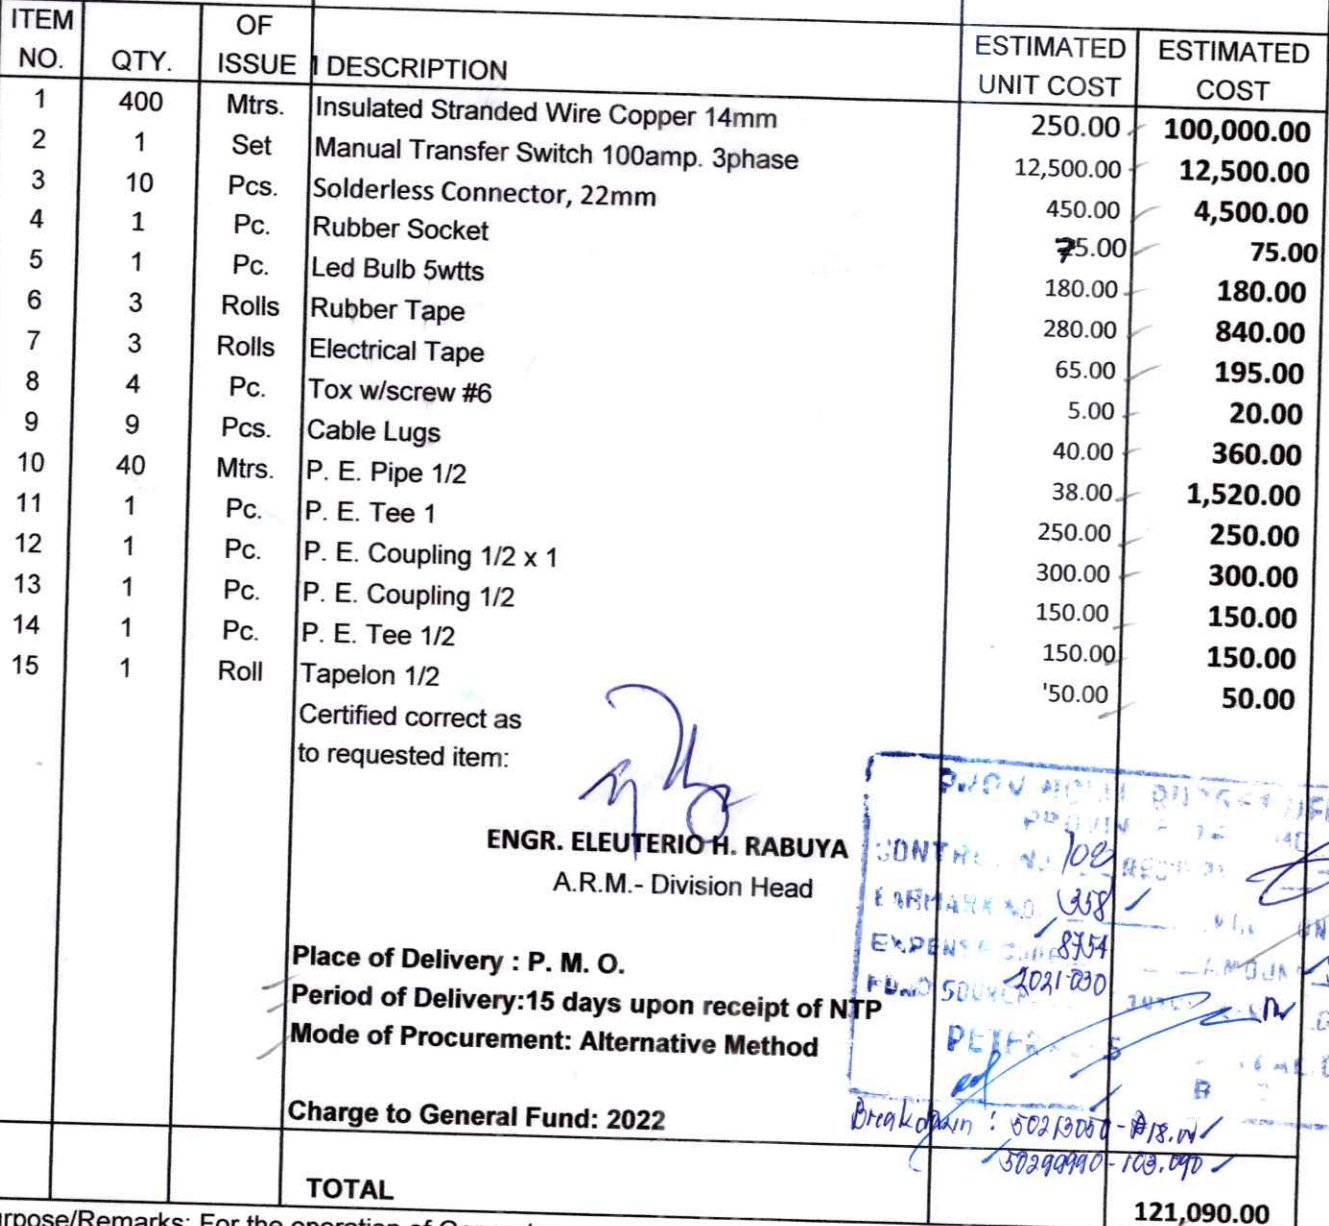 ITEM NO. QTY. OF ISSUE DESCRIPTION ESTIMATED UNIT COST ESTIMATED COST
1 400 Mtrs. Insulated Stranded Wire Copper 14mm 250.00 100,000.00
2 1 Set Manual Transfer Switch 100amp. 3phase 12,500.00 12,500.00
3 10 Pcs. Solderless Connector, 22mm 450.00 4,500.00
4 1 Pc. Rubber Socket 75.00 75.00
5 1 Pc. Led Bulb 5wtts 180.00 180.00
6 3 Rolls Rubber Tape 280.00 840.00
7 3 Rolls Electrical Tape 65.00 195.00
8 4 Pc. Tox w/screw #6 5.00 20.00
9 9 Pcs. Cable Lugs 40.00 360.00
10 40 Mtrs. P. E. Pipe 1/2 38.00 1,520.00
11 1 Pc. P. E. Tee 1 250.00 250.00
12 1 Pc. P. E. Coupling 1/2 x 1 300.00 300.00
13 1 Pc. P. E. Coupling 1/2 150.00 150.00
14 1 Pc. P. E. Tee 1/2 150.00 150.00
15 1 Roll Tapelon 1/2 '50.00 50.00
Certified correct as
to requested item:
ENGR. ELEUTERIO H. RABUYA
A.R.M.- Division Head
EARMARK NO. 358
8754
2021-030
Place of Delivery : P. M. O.
Period of Delivery:15 days upon receipt of NTP
Mode of Procurement: Alternative Method
Charge to General Fund: 2022
Breakdown : 50213050-
50299990-103,090
TOTAL 121,090.00
rpose/Remarks: For the operation of